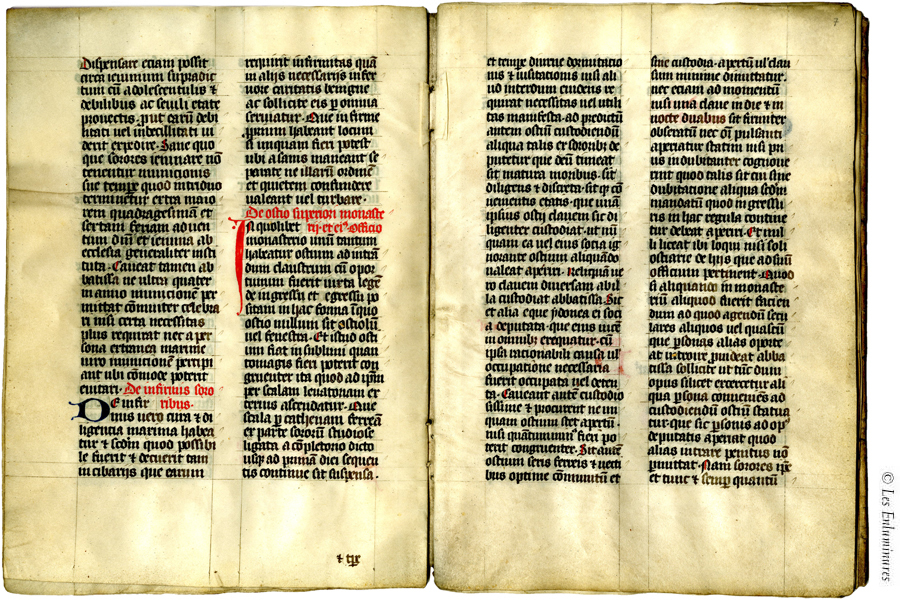 Dispensare eciam possit
circa ieiunium supradic
tum cū adolescentulis &
debilibus ac senili etate
provectis · put earū debi
litati uel inbecillitati vi
derit expedire · Sane quo
que sorores ieiunare nō
tenentur minucionis
sue tempore quod in triduo
terminetur extra maio
rem quadragesimā et
sextam feriam aduen
tum dñi et ieiunia ab
ecclesia generaliter insti
tuta · Caueat tamen ab
batissa ne ultra quater
in anno minucionē per
mittat cōmuniter celebra
ri nisi certa necessitas
plus requirat nec a per
sona extranea maxime
viro minucionē percipi
ant ubi cōmode poterit
euitari · De infirmis soro
DE infir ribus ·
mis uero cura & di
ligencia maxima habea
tur & scdm quod possibi
le fuerit & decuerit tam
in cibarijs que earum
requirit infirmitas quā
in alijs necessarijs in fer
uore caritatis benigne
ac sollicite eis p omnia
seruiatur · Que infirme
proprium habeant locum
si umquam fieri potest
ubi a sanis maneant se
parate ne illarū ordinē
et quietem confundere
ualeant uel turbare ·
De ostio superiori monaste
In quolibet rij · et ei9 officio
monasterio unū tantum
habeatur ostium ad intrā
dum claustrum cū opor
tunum fuerit iuxta legē
de ingressu et egressu po
sitam in hac forma i quo
ostio nullum sit ostiolū
uel fenestra · Et istud osti
um fiat in sublimi quan
to magis fieri poterit con
gruenter ita quod ad ipm
per scalam leuatoriam ex
terius ascendatur · Que
scala p cathenam ferreā
ex parte sororū studiose
ligata a cōpletorio dicto
usq ad primā diei sequen
tis continue sit suspensa ·
& tpe
et tempe diurne dormitacio
nis & uisitationis nisi ali
ud interdum euidens re
quirat necessitas uel utili
tas manifesta · ad predictū
autem ostiū custodiendū
aliqua talis ex sororibus de
putetur que deū timeat
sit matura moribus · sit
diligens & discreta · sit q cō
uenientis etatis · que unā
ipsius ostij clauem sic di
ligenter custodiat · ut nū
quam ea uel eius socia ig
norante ostium aliquādo
ualeat aperiri · Reliquā ue
ro clauem diuersam ab il
la custodiat abbatissa · Sit
et alia eque ydonea ei soci
a deputata · que eius vicē
in omnibus exequatur · cū
ipsa rationabili causa ul
occupatione necessaria
fuerit occupata uel deten
ta · Caueant autē custodio
sissime & procurent ne un
quam ostium stet apertū ·
nisi quantuminus fieri po
terit congruenter · Sit autē
ostium seris ferreis & vecti
bus optime cōmunitū et
sine custodia · apertū ul clau
sum minime dimittatur ·
nec eciam ad momentū
nisi una claue in die & in
nocte duabus sit firmiter
obseratū nec oī pulsanti
aperiatur statim nisi pri
us indubitanter cognoue
rint quod talis sit cui sine
dubitacione aliqua scdm
mandatū quod in gressi
ris in hac regula contine
tur debeat aperiri · Et nul
li liceat ibi loqui nisi soli
ostiarie de hijs que ad suū
officium pertinent · Quod
si aliquando in monaste
rio aliquod fuerit facien
dum ad quod agendū secu
lares aliquos uel quascū
que psonas alias oporte
at introire prouideat abba
tissa sollicite ut tūc dum
opus silicet exercetur ali
qua psona conueniēs ad
custodiendū ostiū statua
tur · que sic psonis ad op9
deputatis aperiat quod
alias intrare penitus nō
pmittat · Nam sorores ipe
et tunc & semp quantū